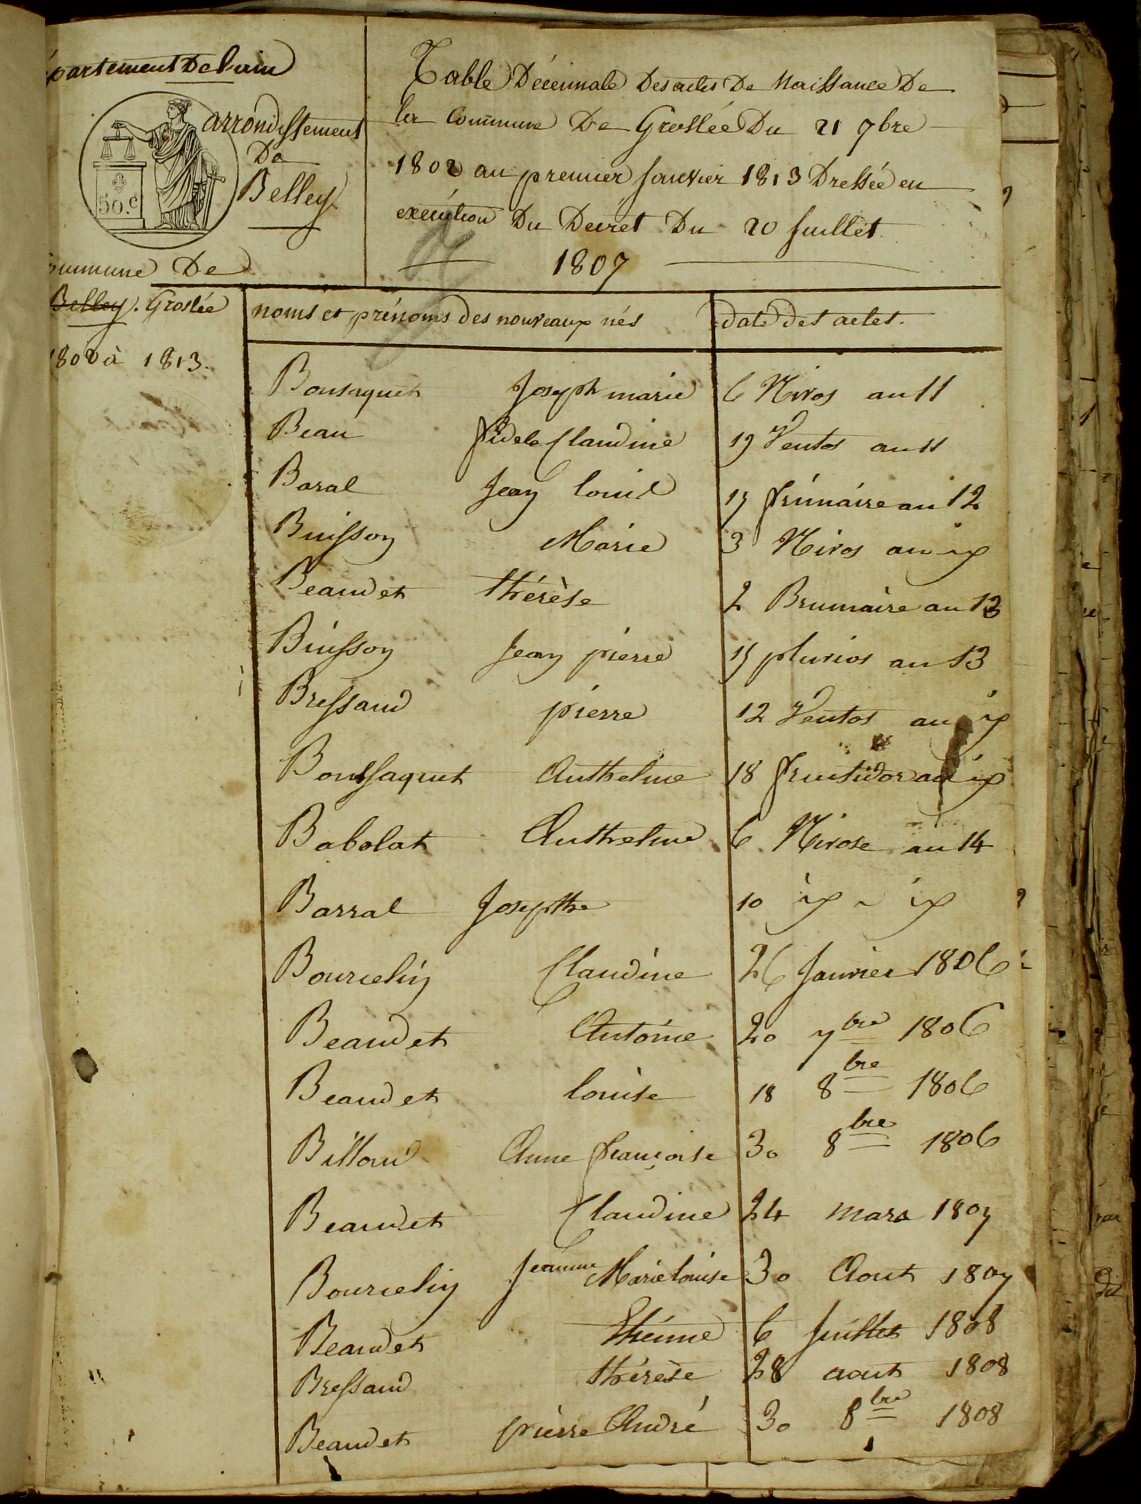 partement De l'ain
arrondissement
De
Belley
50.c
ommune De
Belley. Groslée
1802 à 1813.
Table Décennale Des actes De Naissance De
la Commune De Groslée Du 21 7bre
1802 au premier Janvier 1813 Dressée en
exécution Du Decret Du 20 Juillet
1807
noms et prénoms des nouveaux nés date des actes.
Bonsaquet Joseph marie 6 Nivos an 11
Beau fidele Claudine 19 Ventos an 11
Baral Jean louis 15 frimaire an 12
Buisson Marie 3 Nivos an ix
Beaudet thérèse 2 Brumaire an 13
Buisson Jean pierre 15 pluvios an 13
Bressaud pierre 12 Ventos an ix
Bonsaquet Anthelme 18 fructidor an ix
Babolat Anthelme 6 Nivose an 14
Barral Josepthe 10 ix ix
Bourcelin Claudine 26 Janvier 1806
Beaudet Antoine 20 7bre 1806
Beaudet louise 18 8bre 1806
Billoud Anne françoise 30 8bre 1806
Beaudet Claudine 24 mars 1807
Bourcelin Jeanne Marie louise 30 Aout 1807
Beaudet Etienne 6 Juillet 1808
Bressaud thérèse 28 aout 1808
Beaudet pierre André 30 8bre 1808